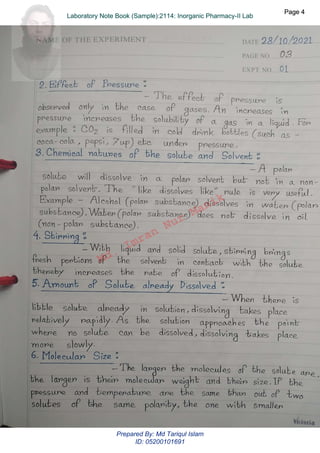 Page 4
Laboratory Note Book (Sample):2114: Inorganic Pharmacy-II Lab
NAME OF THE EXPERIMENT
DATE 28/10/2021
PAGE NO. 03
EXPT NO. 01
2. Effect of Pressure :
- The effect of pressure is
observed only in the case of gases. An increases in
pressure increases the solubility of a gas in a liquid. For
example : CO2 is filled in cold drink bottles (such as -
coca-cola, pepsi, 7up) etc under pressure.
3. Chemical natures of the solute and Solvent :
- A polar
solute will dissolve in a polar solvent but not in a non-
polar solvent. The "like dissolves like" rule is very useful.
Example - Alcohol (polar substance) dissolves in water (polar
substance). Water (polar substance) does not dissolve in oil
(non-polar substance).
4. Stirring :
- With liquid and solid solute, stirring brings
fresh portions of the solvent in contact with the solute
thereby increases the rate of dissolution.
5. Amount of Solute already Dissolved :
- When there is
little solute already in solution, dissolving takes place
relatively rapidly. As the solution approaches the point
where no solute can be dissolved, dissolving takes place
more slowly.
6. Molecular Size :
- The larger the molecules of the solute are,
the larger is their molecular weight and their size. If the
pressure and temperature are the same than out of two
solutes of the same polarity, the one with smaller
Victoria
Prepared By: Md Tariqul Islam
ID: 05200101691